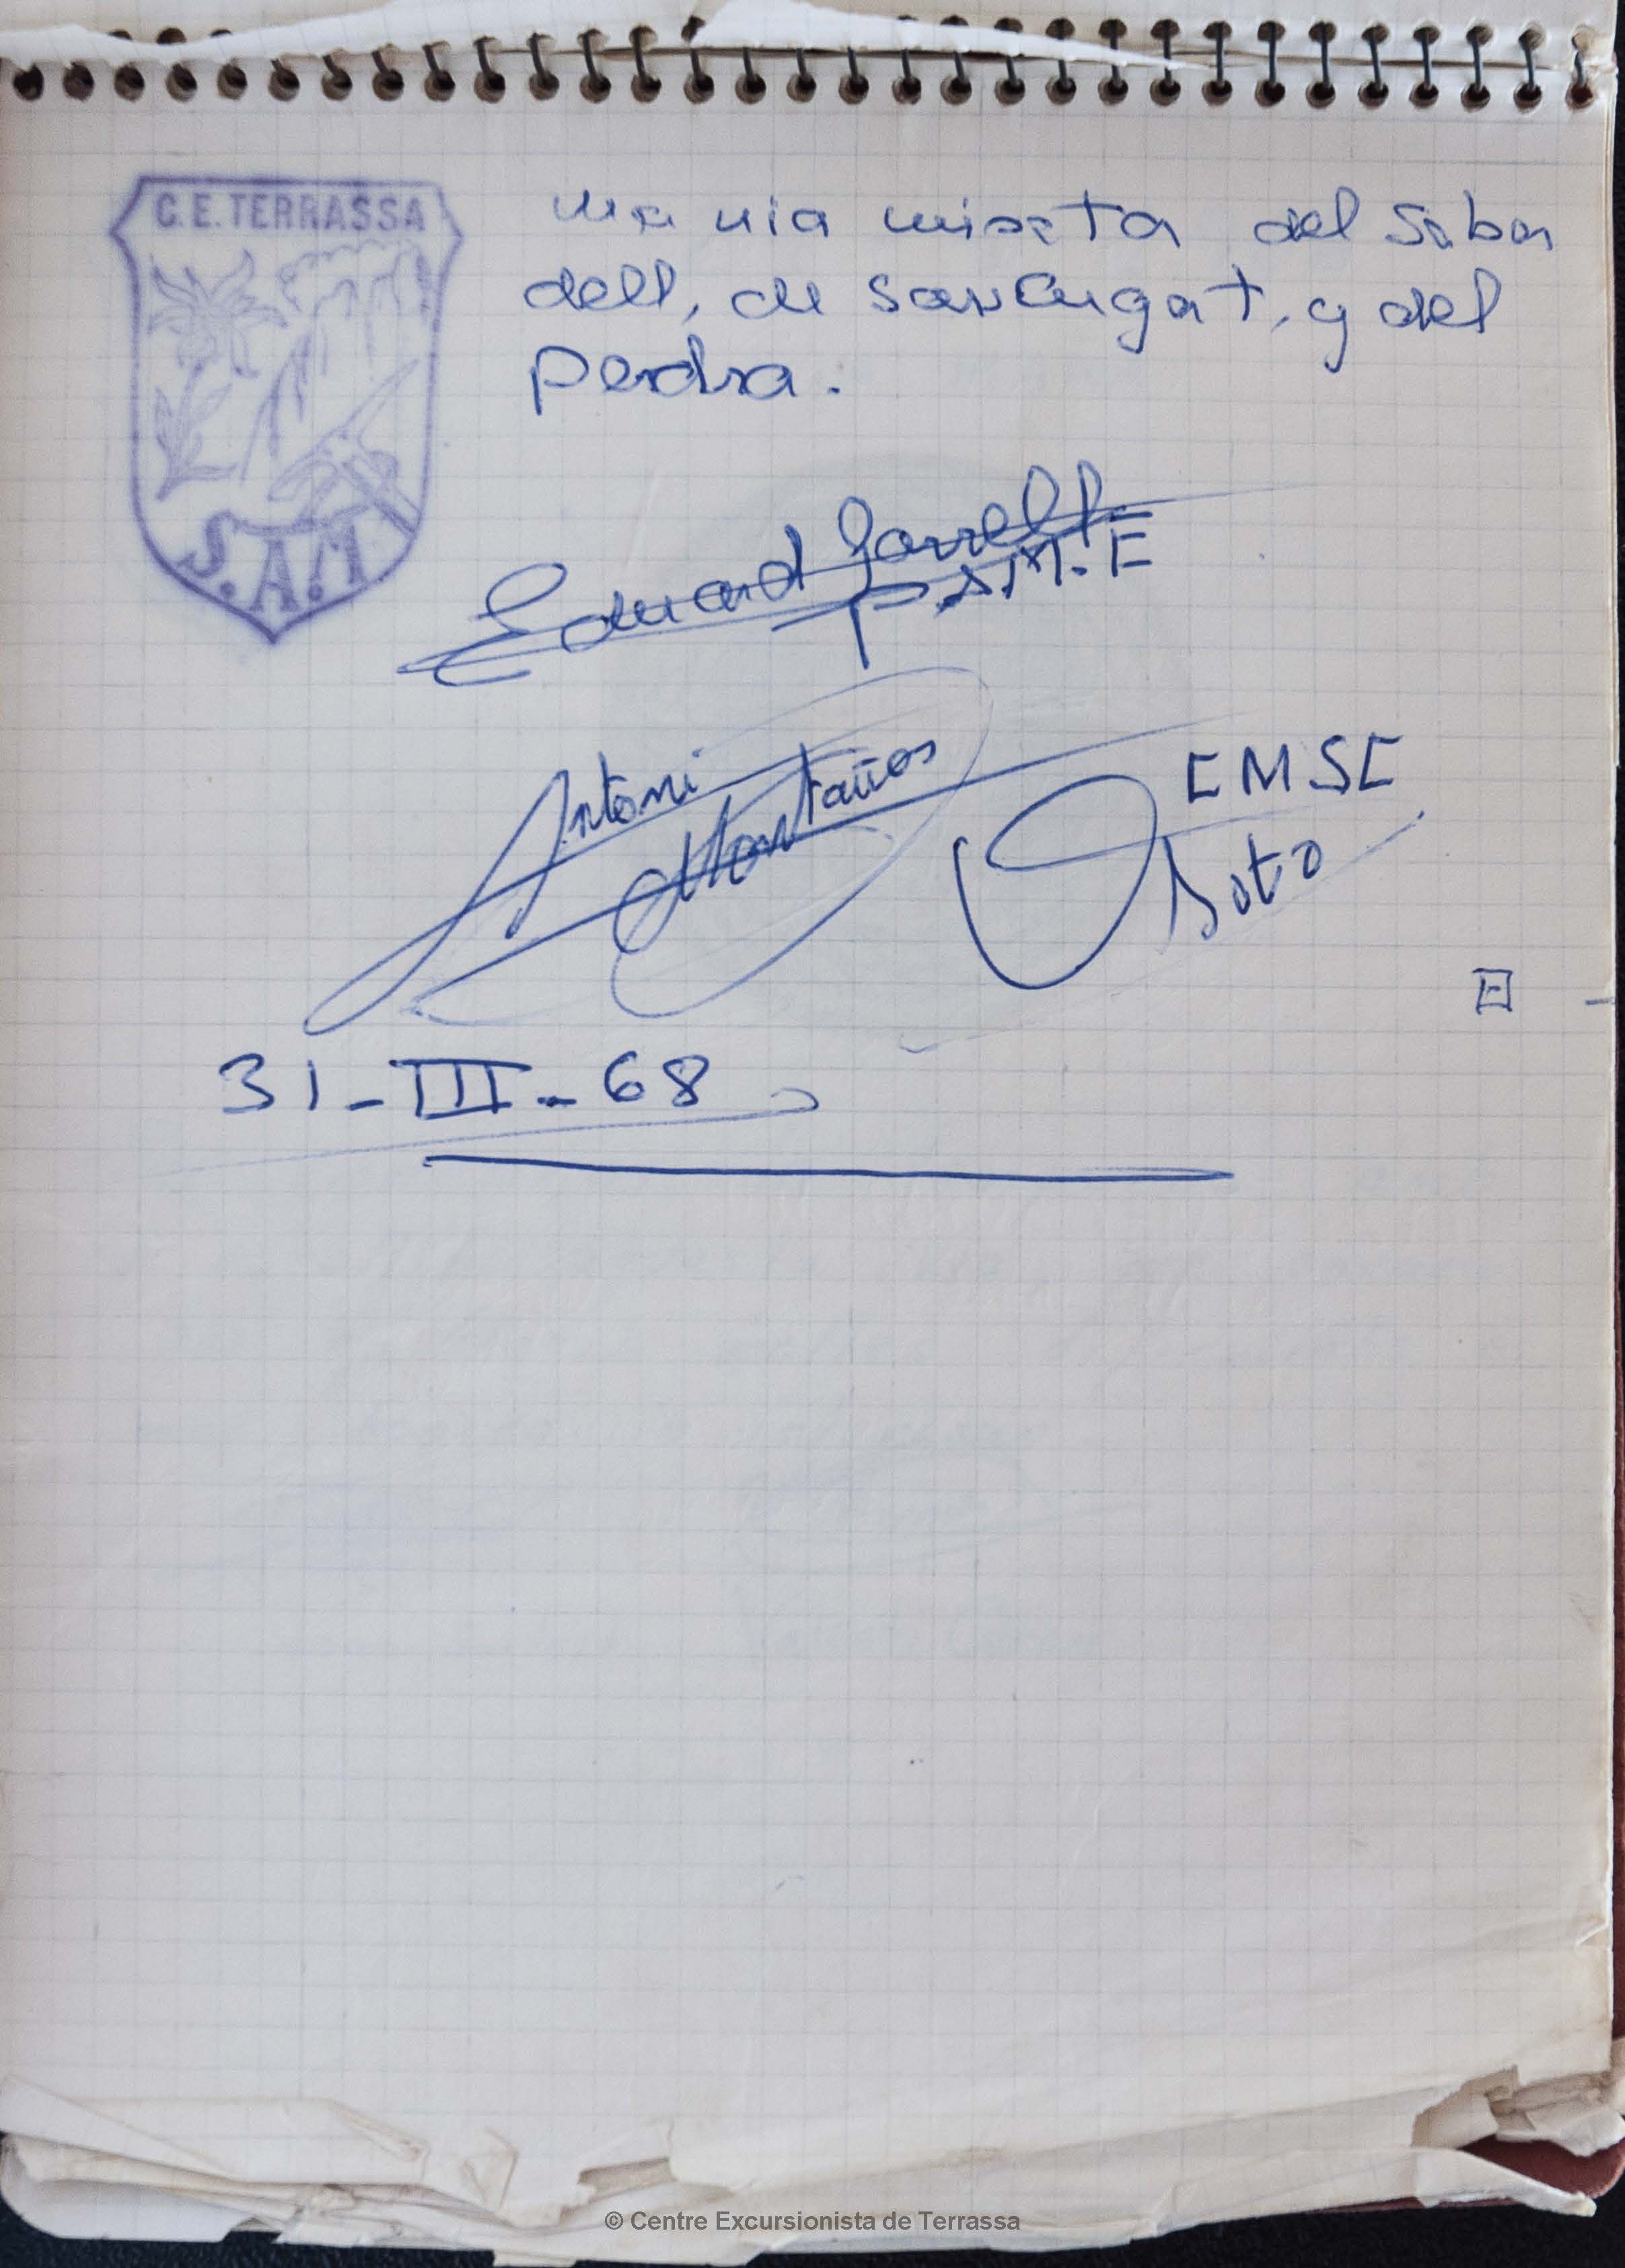 C.E. TERRASSA
S.A.T
una via mixta del Saba
dell, de San Cugat, y del
pedra.
Eduard
S.M.E
Antoni
Montaños
EMSE
Soto
31-III-68
© Centre Excursionista de Terrassa